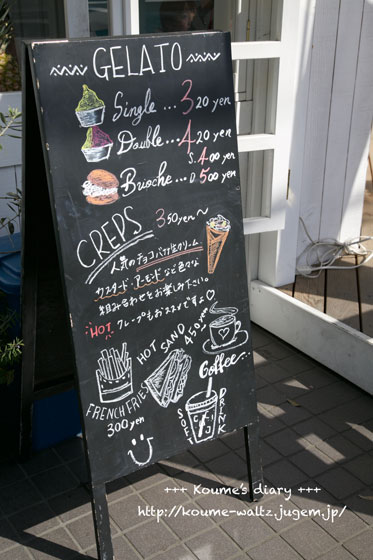 GELATO
Single...320yen
Double...420yen
S.400yen
Brioche...D500yen
CREPS 350yen~
人気のチョコバナナ生クリーム
カスタード・アーモンドなど色々な
組み合わせをお楽しみ下さい。
HOT クレープもおススメですよ♡
HOT SAND
450yen
Coffee...
FRENCH FRIES
300yen
SOFT DRINK
+++ Koume's diary +++
http://koume-waltz.jugem.jp/